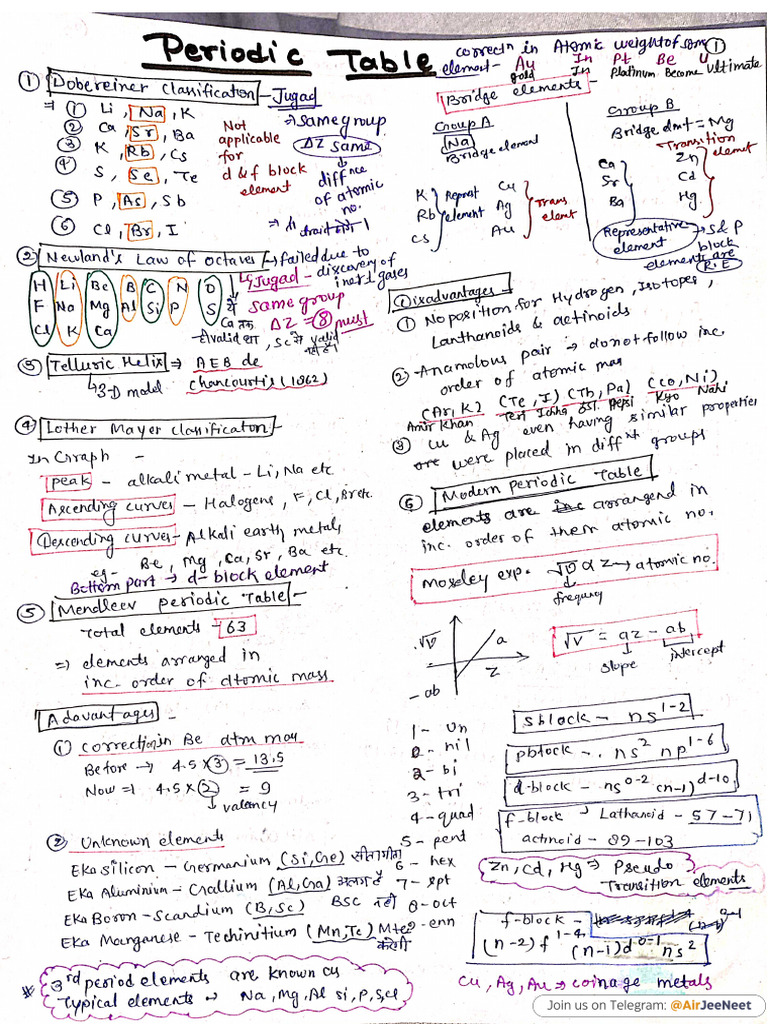 Periodic Table
① Dobereiner Classification - Jugad
⇒ ① Li, Na, K
② Ca, Sr, Ba
③ K, Rb, Cs
④ S, Se, Te
⑤ P, As, Sb
⑥ Cl, Br, I
Not
applicable
for
d & f block
element
⇒ same group
ΔZ same
↓
diffnce
of atomic
no.
② Newland's Law of octaves → failed due to
discovery of
inert gases
H Li Be B C N O
F Na Mg Al Si P S
Cl K Ca
↳ Jugad -
same group
ΔZ = ⑧ must
Ca तक
ही valid था, Sc से valid
नहीं है।
③ Telluric Helix ⇒ AEB de
↳ 3-D model chancourtis (1862)
④ Lother Mayer classification -
In Graph -
peak - alkali metal - Li, Na etc
Ascending curves - Halogens, F, Cl, Br etc.
Descending curves - Alkali earth metals
eg- Be, Mg, Ca, Sr, Ba etc.
Bottom part → d-block element
⑤ Mendleev periodic table -
Total elements - 63
⇒ elements arranged in
inc. order of atomic mass
Adavantages -
① correction in Be atm mass
Before → 4.5 × ③ = 13.5
Now ⇒ 4.5 × ② = 9
↳ valency
② Unknown elements
Eka silicon - Germanium (Si, Ge) सीता गीता
Eka Aluminium - Gallium (Al, Ga) अलग है
Eka Boron - Scandium (B, Sc) BSC नही
Eka Manganese - Techinitium (Mn, Tc) Mtec
करेगी
* 3rd period elements are known as
typical elements → Na, Mg, Al Si, P, S, Cl
correctn in Atomic weight of some ①
element - Au In Pt Be U
gold In Platinum Become Ultimate
Bridge elements -
Group A
Na
Bridge element
K
Rb
Cs
Represt
element
Cu
Ag
Au
Trans
elemt
Group B
Bridge elmt = Mg
Transition
elemet
Ca
Sr
Ba
Zn
Cd
Hg
Representative
element
→ S & P
block
elements are
R.E
Disadvantages -
① No position for Hydrogen, Isotopes,
Lanthanoids & actinoids
② Anamolous pair → do not follow inc.
order of atomic mas
(Ar, K) (Te, I) (Th, Pa) (Co, Ni)
Amir Khan Teri Pepsi Kyo Nahi
③ Cu & Ag even having similar properties
are were placed in diffnt groups
⑥ Modern periodic Table
elements are arrangend in
inc. order of them atomic no.
Moseley exp. √υ α Z → atomic no.
↓
frequency
√υ
a
Z
- ab
√υ = aZ - ab
↓
slope
↓
intercept
0 - nil
1 - un
2 - bi
3 - tri
4 - quad
5 - pent
6 - hex
7 - spt
8 - oct
9 - enn
s block - ns1-2
p block - ns2 np1-6
d-block - ns0-2 (n-1)d1-10
f-block → Lathanoid - 57-71
actinoid - 89-103
Zn, Cd, Hg ⇒ Pseudo
Transition elements
f-block -
(n-2)f1-14 (n-1)d0-1 ns2
Cu, Ag, Au → coinage metals
Join us on Telegram: @AirJeeNeet